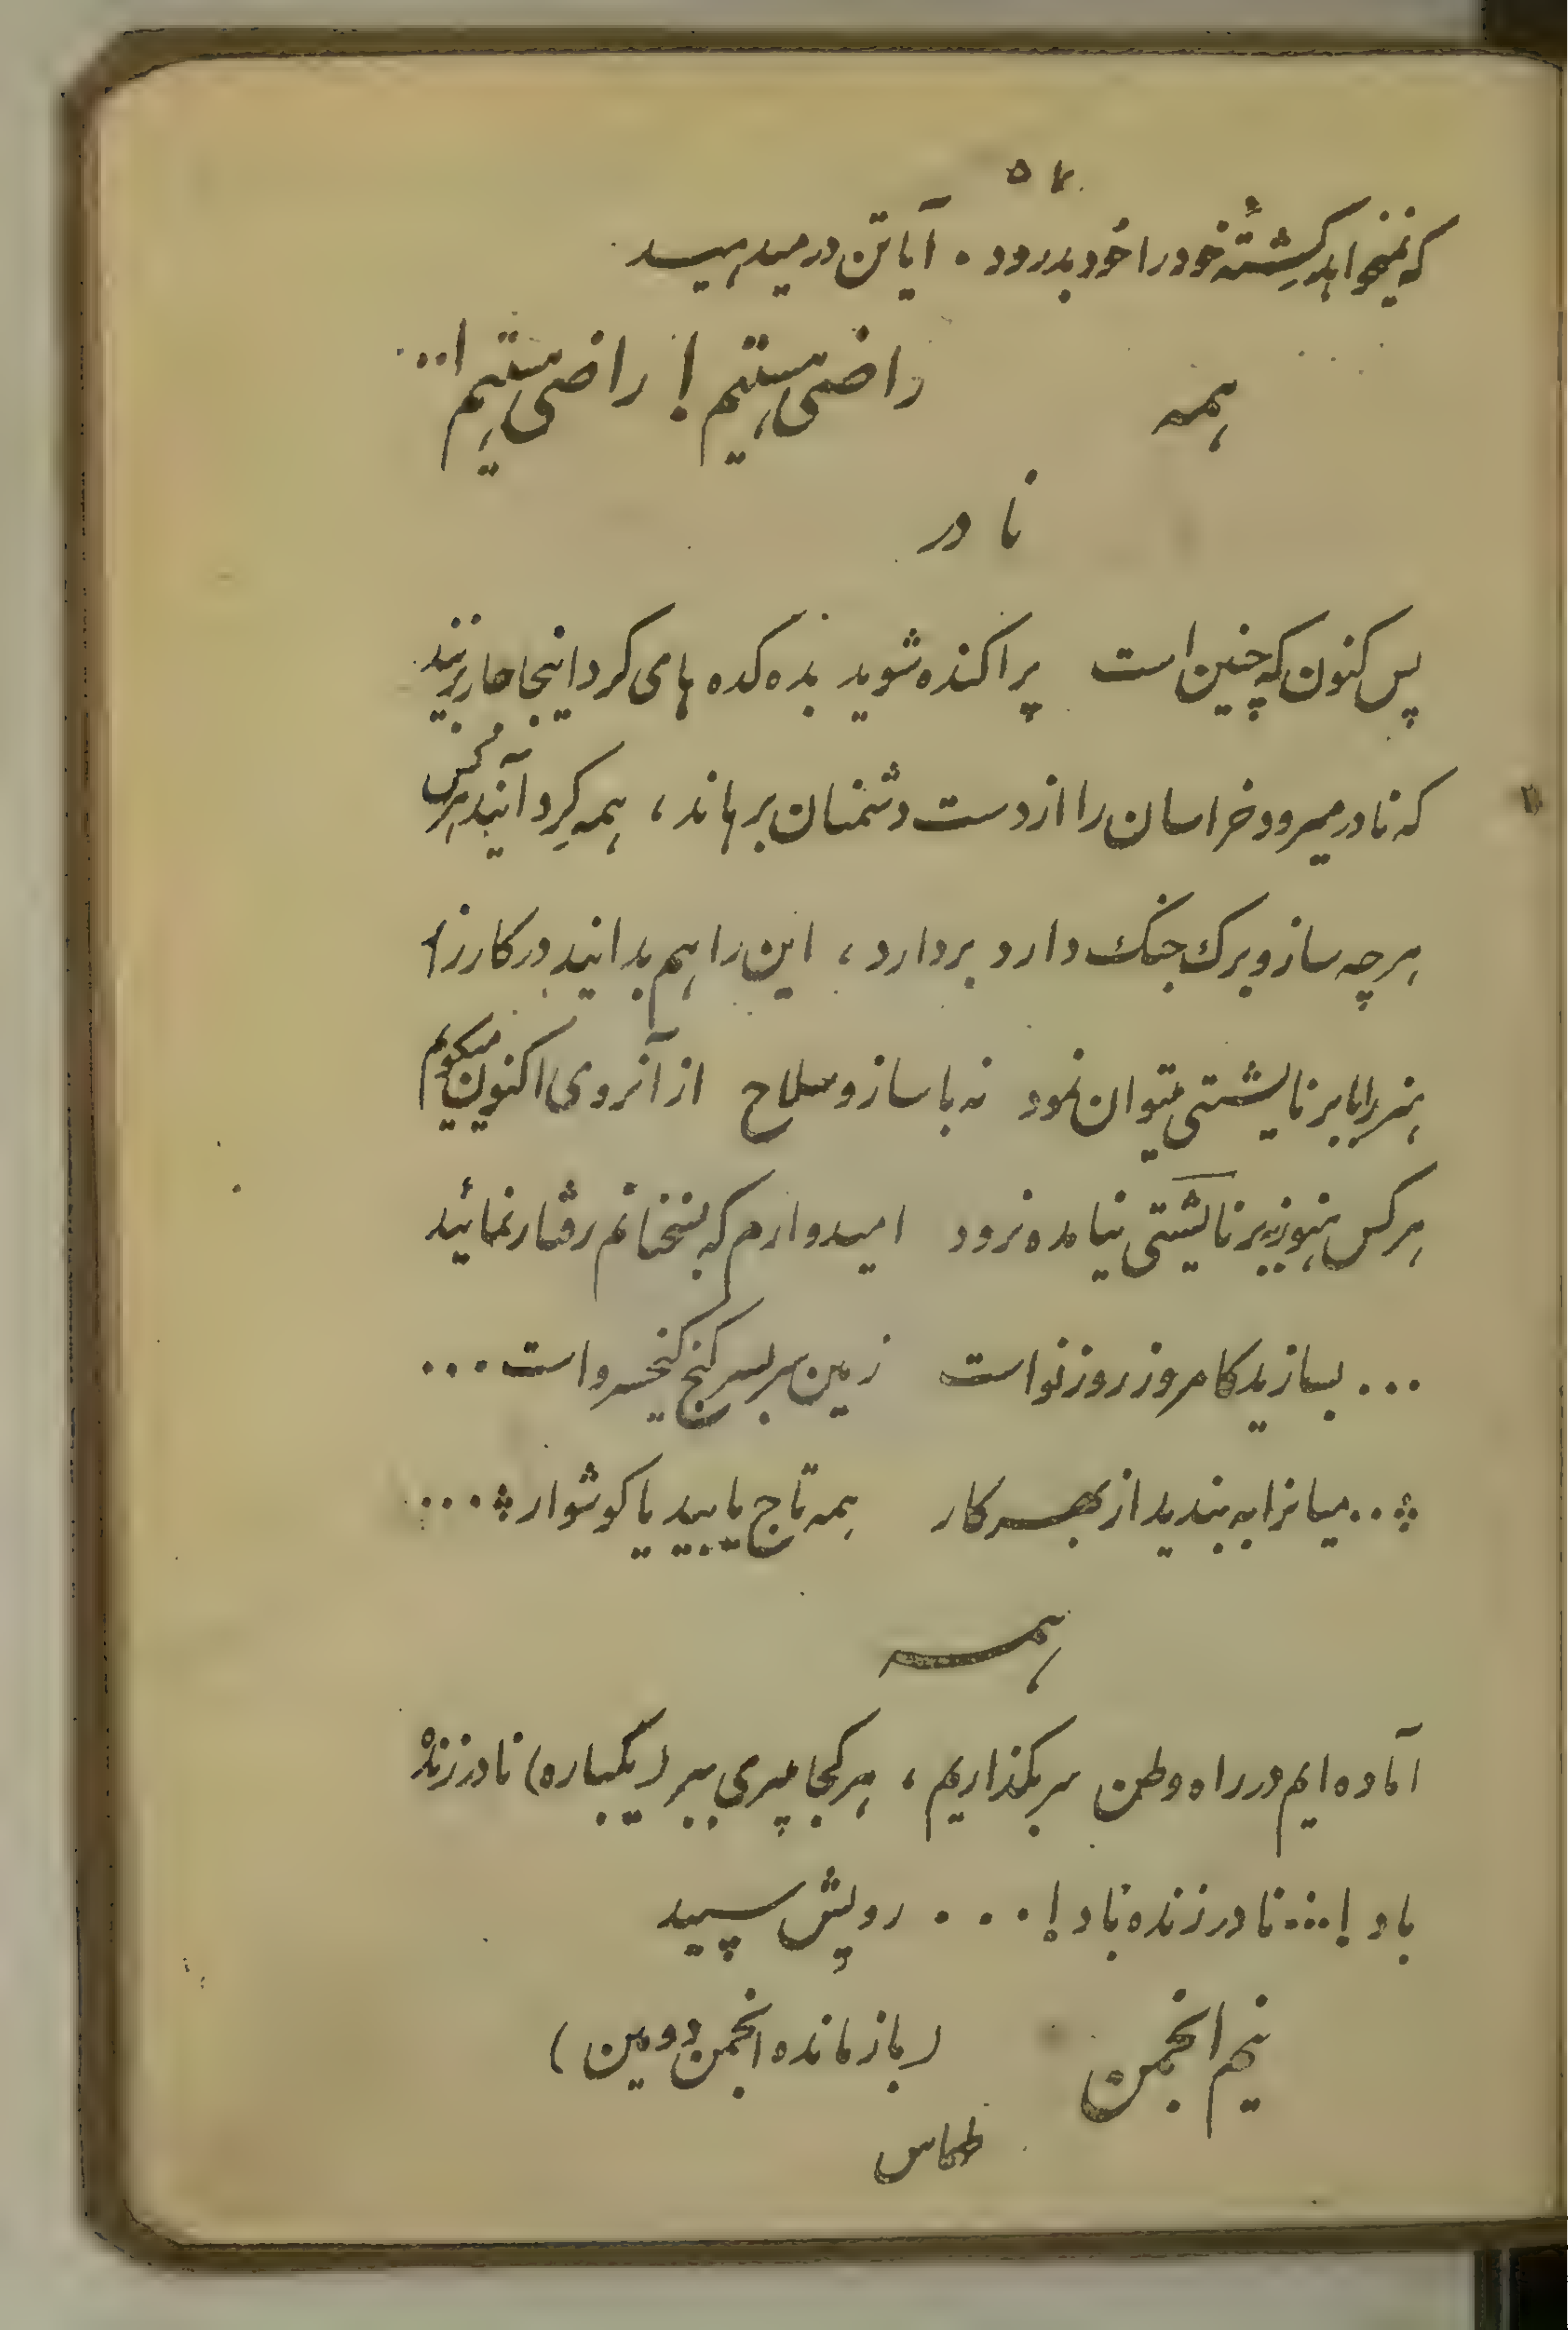 ۵۷
که نمیخواهد کِشتهٔ خود را خود بدرود . آیا تن در میدهید
همه راضی هستیم ! راضی هستیم !...
نادر
پس کنون که چنین است پراکنده شوید بده کده های کرد اینجاها بریزید
که نادر میرود خراسان را از دست دشمنان برهاند ، همه گِرد آیند هر کس
هر چه ساز و برك جنك دارد بردارد ، این را هم بدانید در کارزار
هنر را با برنایشتی میتوان نمود نه با ساز و سلاح از آنروی اکنون میگویم
هر کس هنوز ببرنایشتی نیامده نرود امیدوارم که بسخنانم رفتار نمائید
... بسازید کامروز روز نو است زمین سربسر کنج کیخسرو است ...
... میانرا به بندید از بهر کار همه تاج یابید یا کوشوار ...
همه
آماده ایم در راه وطن سر بگذاریم ، هر کجا میبری ببر (یکباره) نادر زنده
باد !... نادر زنده باد ! . . . رویش سپید
نیم انجمن (بازمانده انجمن دومین)
طهماس